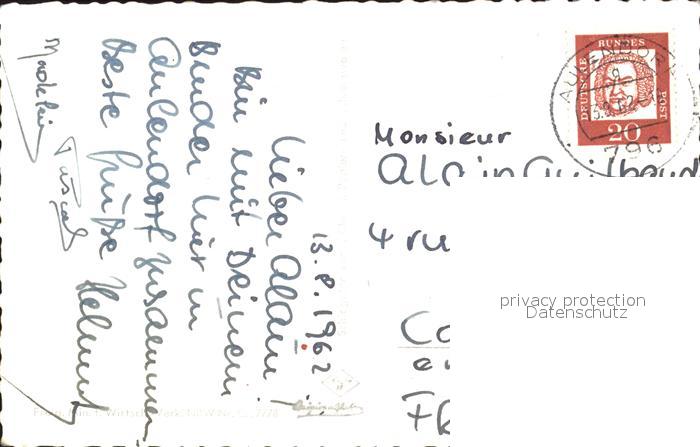 13.8.1962
Lieber Alain!
Bin mit Deinem
Bruder hier in
Aulendorf zusammen
Beste Grüße Helmut
Pascal
Madeleine
DEUTSCHE BUNDES POST
20
AULENDORF
13.8.62
796
Monsieur
Alain Guilbaud
4 ru
Co
privacy protection
Datenschutz